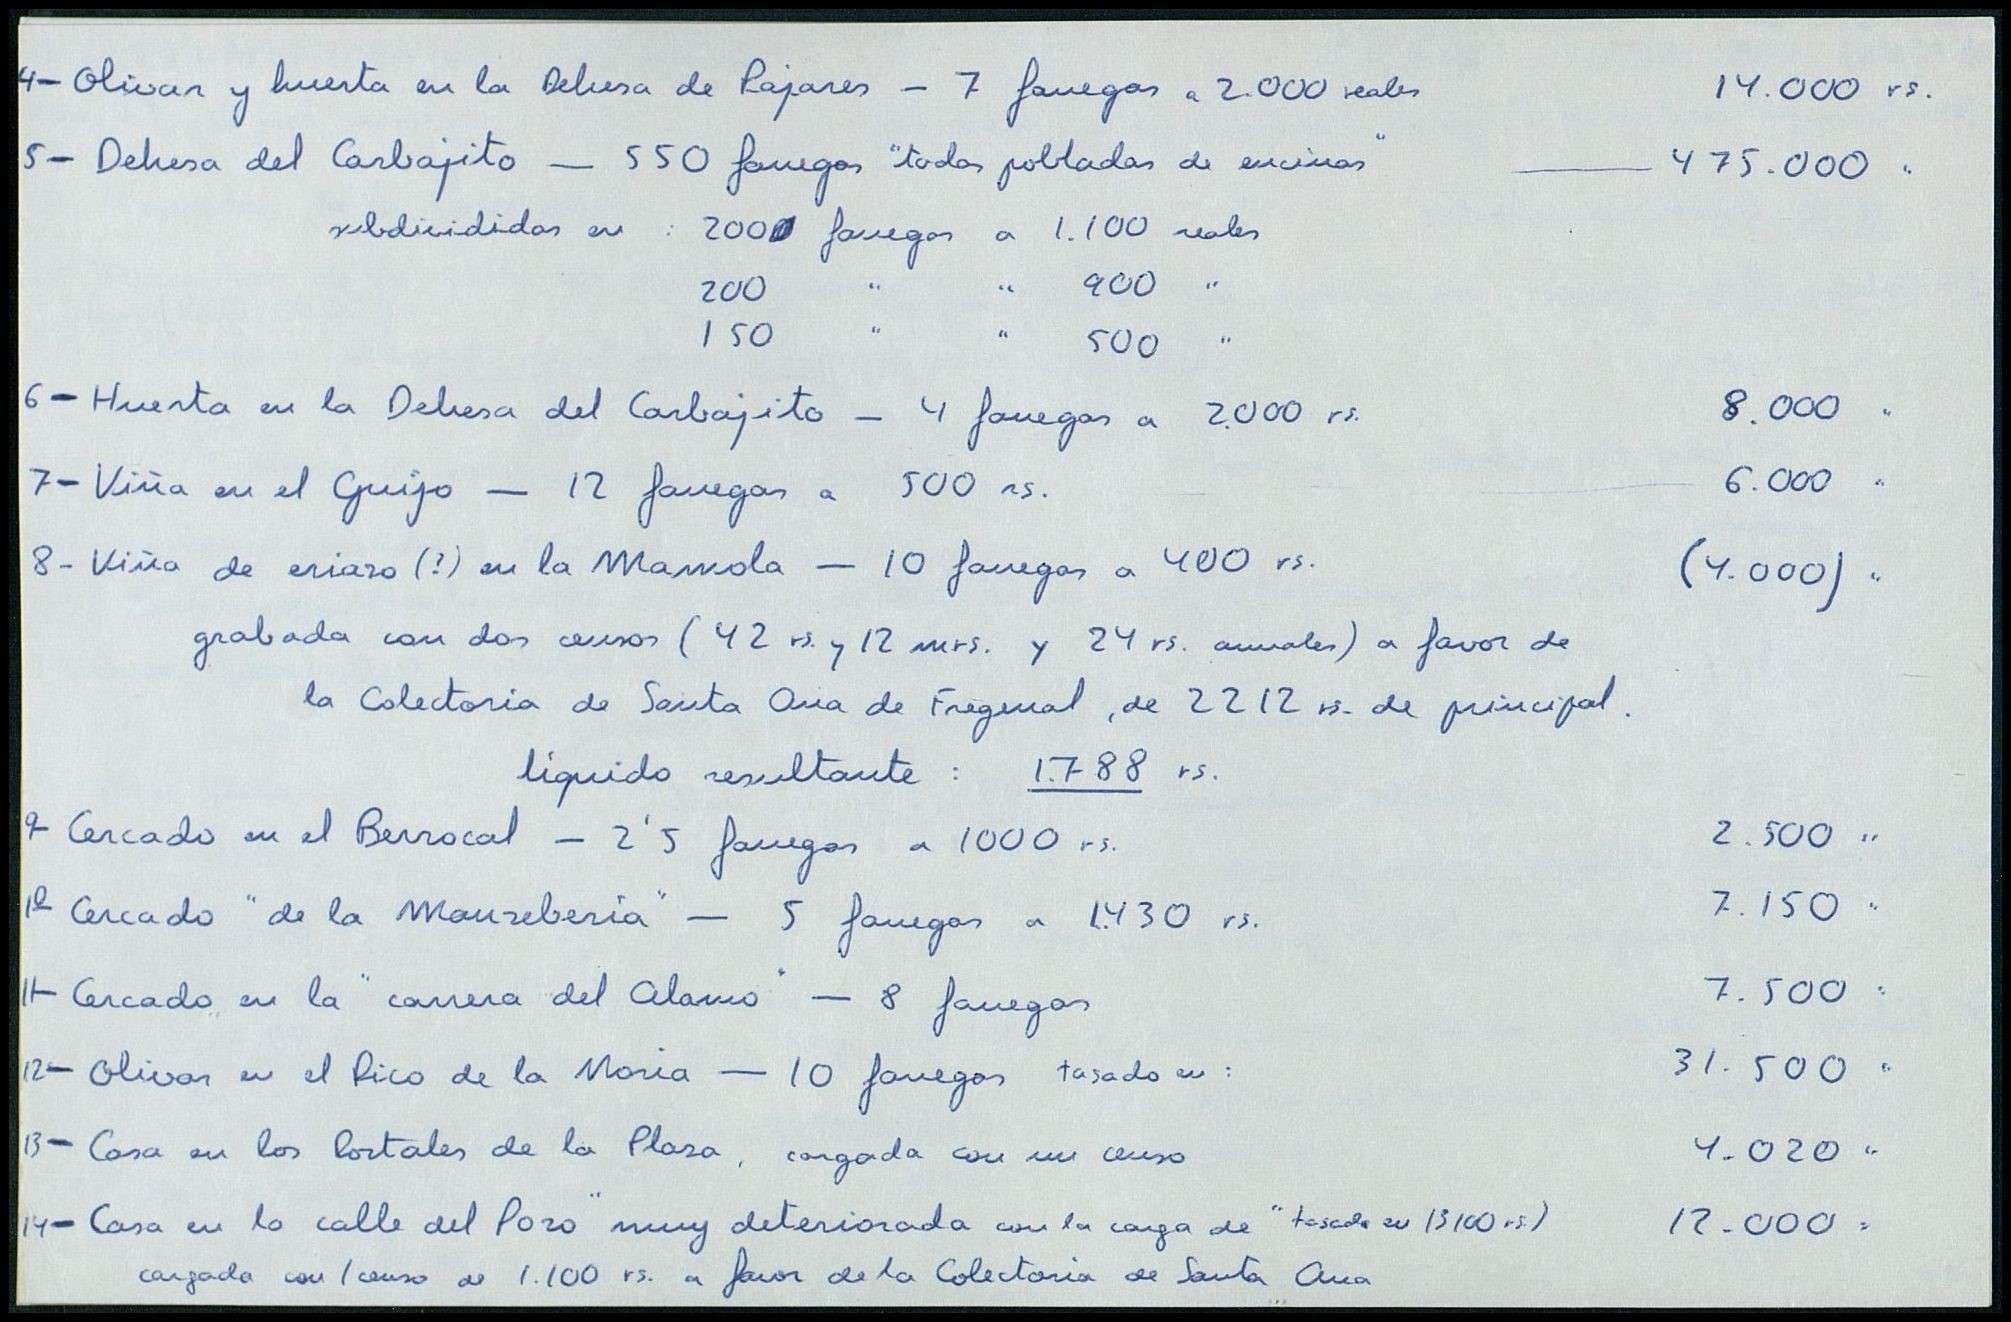 4- Olivar y huerta en la Dehesa de Pajares - 7 fanegas a 2.000 reales 14.000 rs.
5- Dehesa del Carbajito - 550 fanegas "todas pobladas de encinas" 475.000 "
subdivididas en : 200 fanegas a 1.100 reales
200 " " 900 "
150 " " 500 "
6- Huerta en la Dehesa del Carbajito - 4 fanegas a 2.000 rs. 8.000 "
7- Viña en el Guijo - 12 fanegas a 500 rs. 6.000 "
8- Viña de eriazo (?) en la Mamola - 10 fanegas a 400 rs. (4.000) "
grabada con dos censos (42 rs. y 12 mrs. y 24 rs. anuales) a favor de
la Colectoria de Santa Ana de Fregenal, de 2212 rs. de principal.
líquido resultante : 1.788 rs.
9- Cercado en el Berrocal - 2'5 fanegas a 1000 rs. 2.500 "
10- Cercado "de la Manzebería" - 5 fanegas a 1.430 rs. 7.150 "
11- Cercado en la "carrera del Alamo" - 8 fanegas 7.500 "
12- Olivar en el Pico de la Noria - 10 fanegas tasado en : 31.500 "
13- Casa en los Portales de la Plaza, cargada con un censo 4.020 "
14- Casa en la calle del Pozo "muy deteriorada con la carga de" tasada en 13100 rs.) 12.000 "
cargada con 1 censo de 1.100 rs. a favor de la Colectoria de Santa Ana